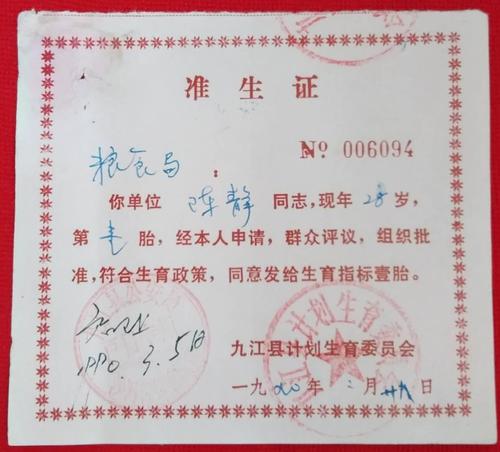 准生证
№ 006094
粮食局：
你单位 陈静 同志，现年 28 岁，
第 壹 胎，经本人申请，群众评议，组织批
准，符合生育政策，同意发给生育指标壹胎。
1990.3.5日
九江县计划生育委员会
一九九〇年 二月 日